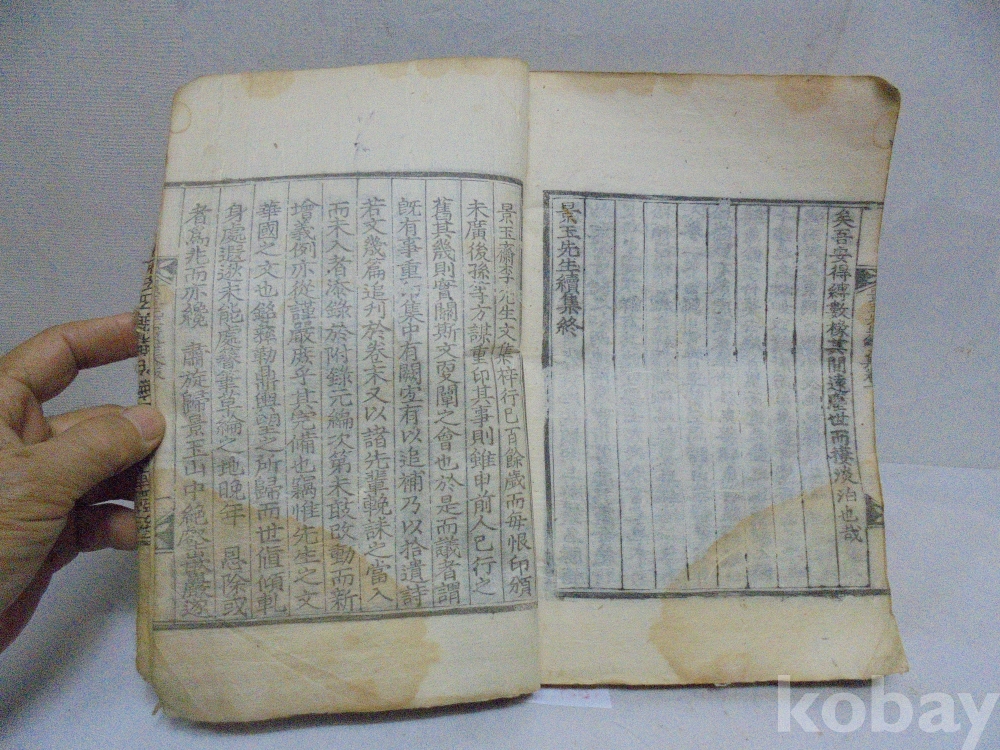 矣吾安得縛數椽其間遠塵世而棲淡泊也哉
景玉先生續集終
景玉齋李先生文集梓行已百餘歲而每恨印頒
未廣後孫等方謀重印其事則雖申前人已行之
舊其幾則實關斯文更闡之會也於是而議者謂
旣有事重 集中有闕 有以追補乃以拾遺詩
若文幾篇追刊於卷末又以諸先輩輓誄之當入
而未入者添錄於附錄元編次第未敢改動而新
增義例亦從謹嚴庶乎其完備也竊惟先生之文
華國之文也銘彛勒鼎輿望之所歸而世値傾軋
身處遐逖未能處 筆草綸之地晩年 恩除或
者爲兆而亦纔 肅旋歸景玉山中絶 邃
kobay